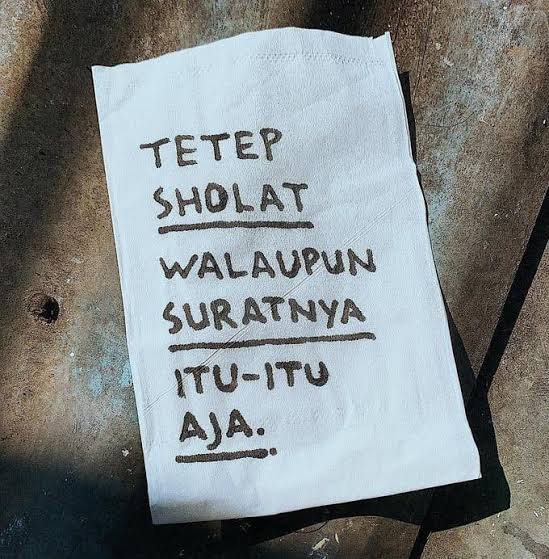 TETEP
SHOLAT
WALAUPUN
SURATNYA
ITU-ITU
AJA.